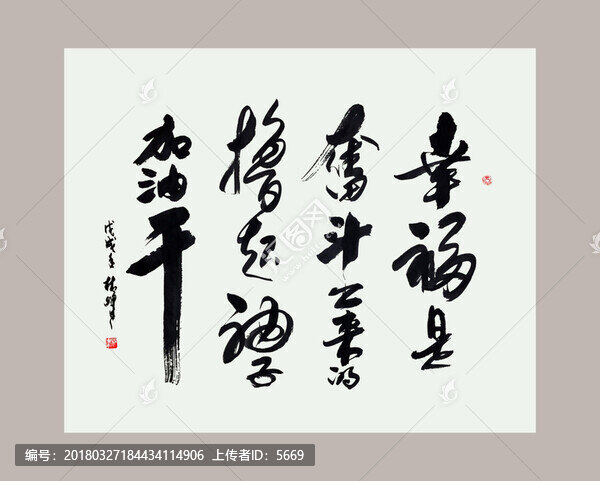 幸福是
奋斗出来的
撸起袖子
加油干
戊戌年
编号：20180327184434114906 上传者ID：5669